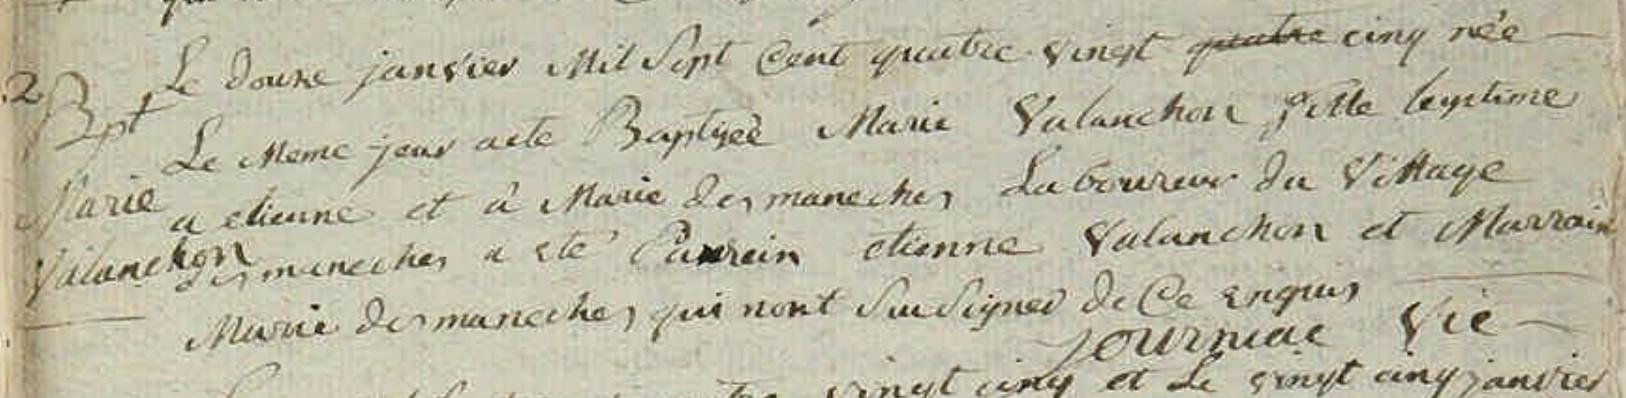 Le douze janvier Mil Sept Cent quatre vingt quatre cinq née
2
Bpt
Le Meme jour aeté Baptiseè Marie Valanchon fille legitime
Marie
a etienne et à Marie desmaneches Laboureur du Village
Valanchon
desmaneches a eté Parrein etienne Valanchon et Marrain
Marie desmaneches qui nont Su Signer de Ce Enquis
Journiac Vic
vingt cinq et Le vingt cinq janvier